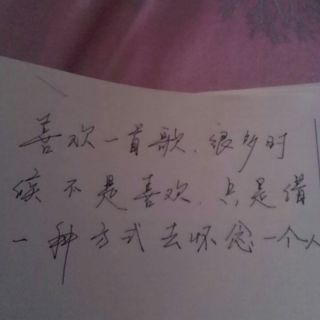 喜欢一首歌，很多时
候不是喜欢，只是借
一种方式去怀念一个人